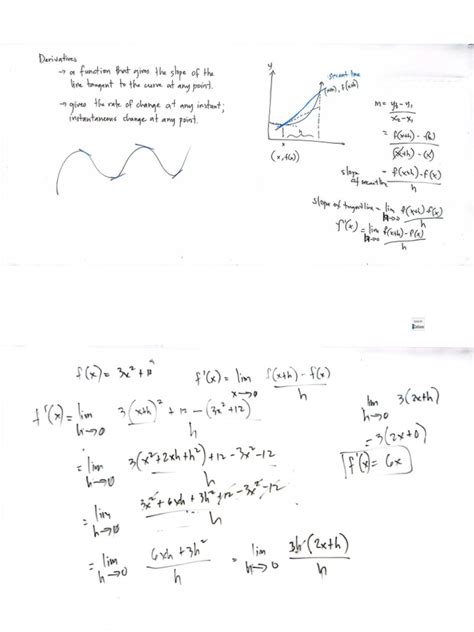 Derivatives
→ a function that gives the slope of the
line tangent to the curve at any point.
→ gives the rate of change at any instant;
instantaneous change at any point.
y
secant line
(x+h), f(x+h)
x
(x, f(x))
m = y₂ - y₁
x₂ - x₁
(x+h) - (x)
slope
of secant line
= f(x+h) - f(x)
h
slope of tangent line = lim f(x+h) - f(x)
h
f'(x) = lim f(x+h) - f(x)
h→0 h
f'(x) = lim f(x+h) - f(x)
x→0 h
f'(x) = lim 3(x+h)² + 12 - (3x² + 12)
h→0 h
= lim 3(x² + 2xh + h²) + 12 - 3x² - 12
h→0 h
= lim 3x² + 6xh + 3h² + 12 - 3x² - 12
h→0 h
= lim 6xh + 3h² = lim 3h (2x+h)
h→0 h h→0 h
lim 3(2x+h)
h→0
= 3(2x+0)
f'(x) = 6x